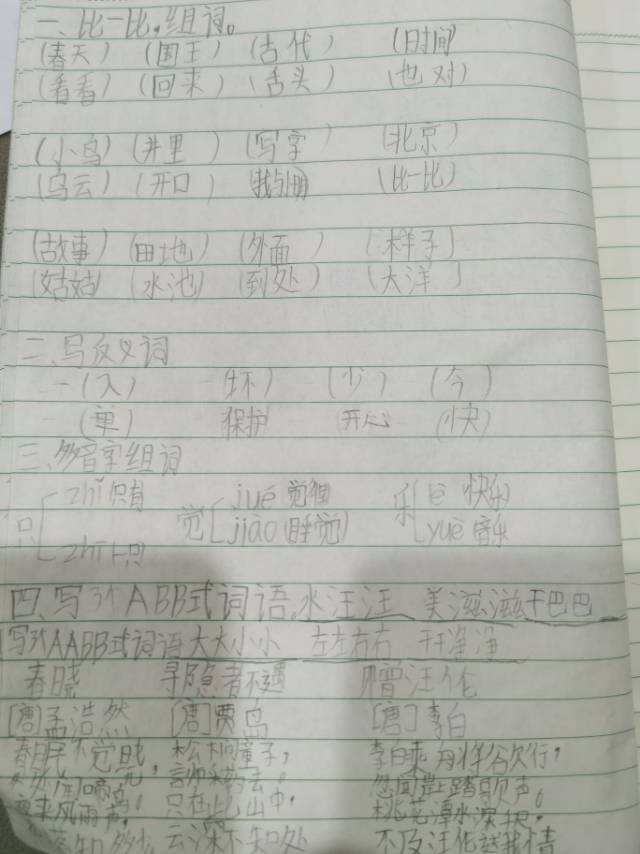 一、比一比,组词。
(春天) (国王) (古代) (时间)
(看看) (回来) (舌头) (也对)
(小鸟) (井里) (写字) (北京)
(乌云) (开口) (比一比)
(故事) (田地) (外面) (样子)
(姑姑) (水池) (到处) (大洋)
二、写反义词
一(入) 一坏) (少) (今)
(单) 保护 开心 (快)
三、多音字组词
只 zhǐ 只有 觉 jué 觉得 乐 lè 快乐
jiào (睡觉) yuè 音乐
zhī 一只
四、写3个ABB式词语,水汪汪 美滋滋干巴巴
写3个AABB式词语大大小小 左左右右 干干净净
春晓 寻隐者不遇 赠汪伦
孟浩然 贾岛 [唐]李白
春眠不觉晓, 松下问童子, 李白乘舟将欲行,
处处闻啼鸟。 言师采药去。 忽闻岸上踏歌声。
夜来风雨声, 只在此山中, 桃花潭水深千尺,
花落知多少 云深不知处 不及汪伦送我情